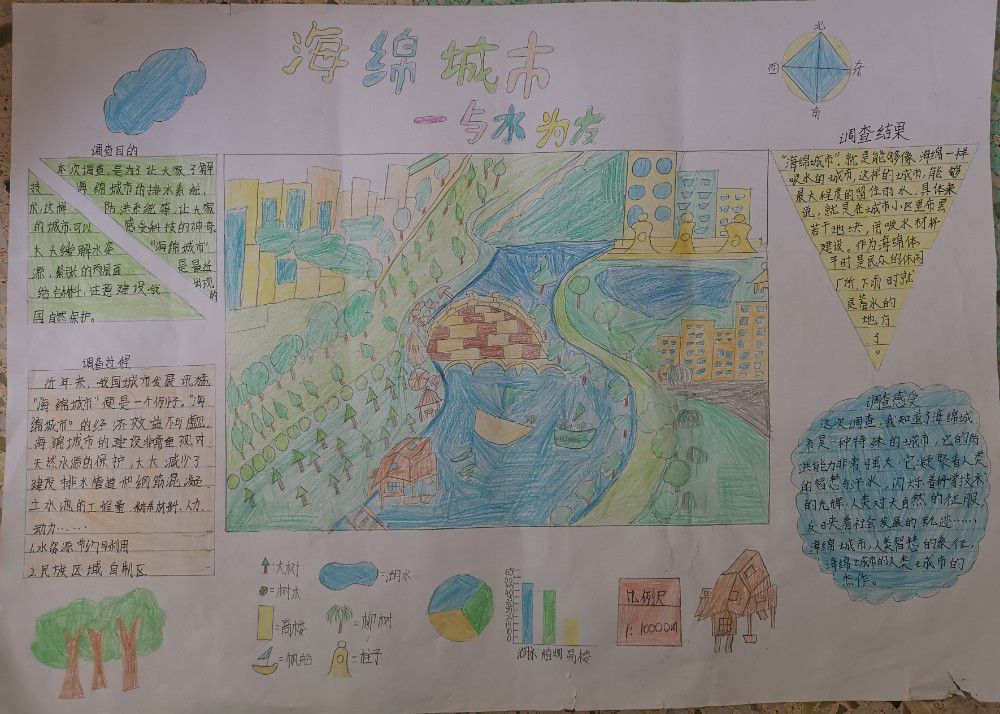 海绵城市
一与水为友
北
西
东
南
调查目的
本次调查是为了让大家了解
海绵城市的排水系统,
防洪系统等,让大家
感受科技的神奇
"海绵城市"
是最近
出现
的
技
术,这样
的城市可以
大大缓解水资
源,紧张的两层面
结合
注意建设我
国自然保护。
调查结果
"海绵城市"就是能够像海绵一样
吸水的城市,这样的城市,能够
最大程度的留住雨水,具体来
说,就是在城市小区里布置
若干地块,用吸水材料
建设。作为海绵体
平时是民众的休闲
广所,下雨时就
是蓄水的
地方
了。
调查过程
近年来,我国城市发展迅猛
"海绵城市"便是一个例子。"海
绵城市"的经济效益不与虚,
海绵城市的建设非常重视对
天然水源的保护,大大减少了
建设排水管道和钢筋混凝
土水池的工程量
材料,人力,
动力……
1.水资源节约与利用
2.民族区域自制区
调查感受
这次调查,我知道了海绵城
市是一种特殊的城市,它的防
洪能力非常强大,它凝聚着人类
的智慧与汗水,闪烁着科技
的光辉,人类对大自然的征服,
反日夹着社会发展的轨迹……
海绵城市,人类智慧的象征,
海绵城市的人类城市的
杰作。
:大树
=湖水
=树木
=高楼
=柳树
=帆船
=柱子
湖水 植物 高楼
比例尺
1:10000M